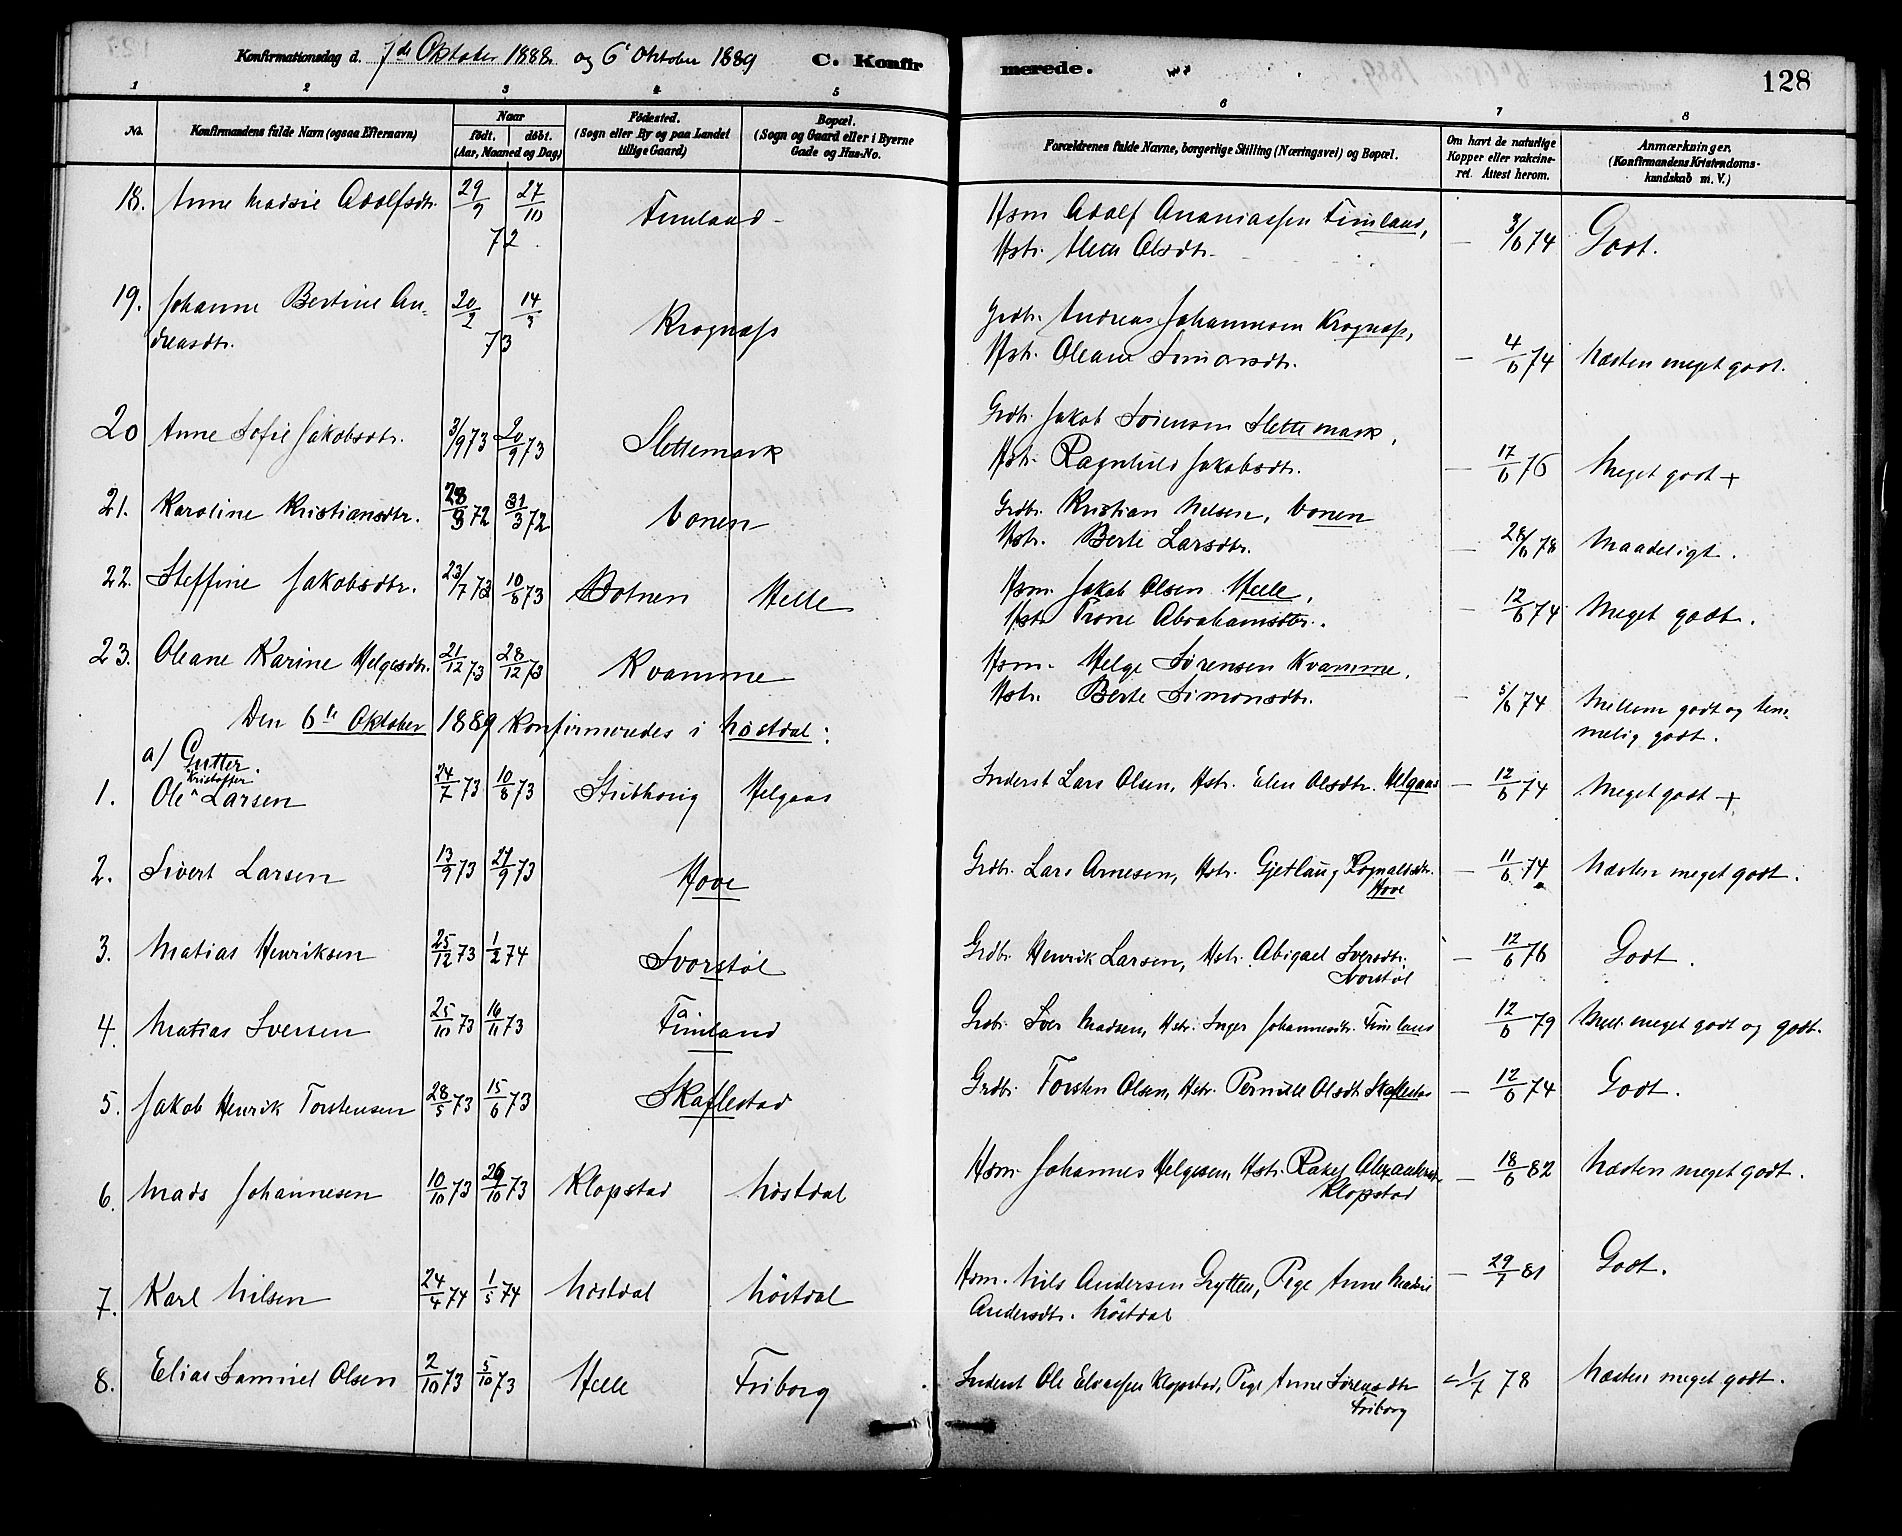 Konfirmationsdag d. 7de Oktober 1888 og 6te Oktober 1889 C. Konfir merede. 128
1 2 3 4 5 6 7 8
No. Konfirmandens fulde Navn (ogsaa Efternavn) Naar født. døbt. (Aar, Maaned og Dag) Fødested. (Sogn eller By og paa Landet tillige Gaard) Bopæl. (Sogn og Gaard eller i Byerne Gade og Hus-No. Forældrenes fulde Navne, borgerlige Stilling (Næringsvei) og Bopæl. Om havt de naturlige Kopper eller vakcineret. Attest herom. Anmærkninger. (Konfirmandens Kristendomskundskab m. V.)
18. Anne Madsie Adolfsdtr. 29/9 27/10 72. Fimland - Hsm Adolf Ananiassen Fimland, - 3/6 74 Godt.
Hstr. Olsdtr.
19. Johanne Bertine An- 20/2 14/3 73 Krognæss Grdbr. Andreas Johannesen Krognæss, - 4/6 74 Næsten meget godt.
dreasdtr. Hstr. Oleane Simonsdtr.
20 Anne Sofie Jakobsdtr. 3/9 73 20/9 73 Slettemark Grdbr. Jakob Sørensen Slettemark, - 17/6 76 Meget godt +
Hstr. Ragnhild Jakobsdtr.
21. Karoline Kristiansdtr. 28/3 72 31/3 72 Vonen Grdbr. Kristian Nilsen, Vonen - 28/6 78 Maadeligt.
Hstr. Berte Larsdtr.
22. Steffine Jakobsdtr. 23/7 73 10/8 73 Botnen Helle Hsm. Jakob Olsen Helle, - 12/6 74 Meget godt.
Hstr. Trone Abrahamsdtr.
23. Oleane Karine Helgesdtr. 21/12 73 28/12 73 Kvamme Hsm. Helge Sørensen Kvamme, - 5/6 74 Mellem godt og tem-
Hstr. Berte Simonsdtr. melig godt.
Den 6te Oktober 1889 konfirmeredes i Nöstdal:
a) Gutter.
1. Ole Kristoffer Larsen 24/7 73 10/8 73 Stubhoug Helgaas Inderst Lars Olsen, Hstr. Elen Olsdtr. Helgaas - 12/6 74 Meget godt +
2. Sivert Larsen 13/9 73 21/9 73 Hove Grdbr. Lars Arnesen, Hstr. Gjetlaug Rognaldsdtr. Hove - 11/6 74 Næsten meget godt.
3. Matias Henriksen 25/12 73 1/2 74 Svorstöl Grdbr. Henrik Larsen, Hstr. Abigael Iversdtr. Svorstöl - 12/6 76 Godt.
4. Matias Iversen 25/10 73 16/11 73 Fimland Grdbr. Iver Madsen, Hstr. Inger Johannesdtr. Fimland 12/6 79 Mell. meget godt og godt.
5. Jakob Henrik Torstensen 28/5 73 15/6 73 Skaflestad Grdbr. Torsten Olsen, Hstr. Pernille Olsdtr Skaflestad - 12/6 74 Godt.
6. Mads Johannesen 10/10 73 26/10 73 Klopstad Nöstdal Hsm. Johannes Helgesen, Hstr. Rakel Alexandersdtr. Klopstad - 18/6 82 Næsten meget godt.
7. Karl Nilsen 24/4 74 1/5 74 Nöstdal Nöstdal Hsm. Nils Andersen Grytten, Pige Anne Madsie - 29/7 81 Godt.
Andersdtr. Nöstdal
8. Elias Samuel Olsen 2/10 73 5/10 73 Helle Friborg Inderst Ole Eliassen Klopstad, Pige Anne Sørensdtr Friborg - 1/7 78 Næsten meget godt.